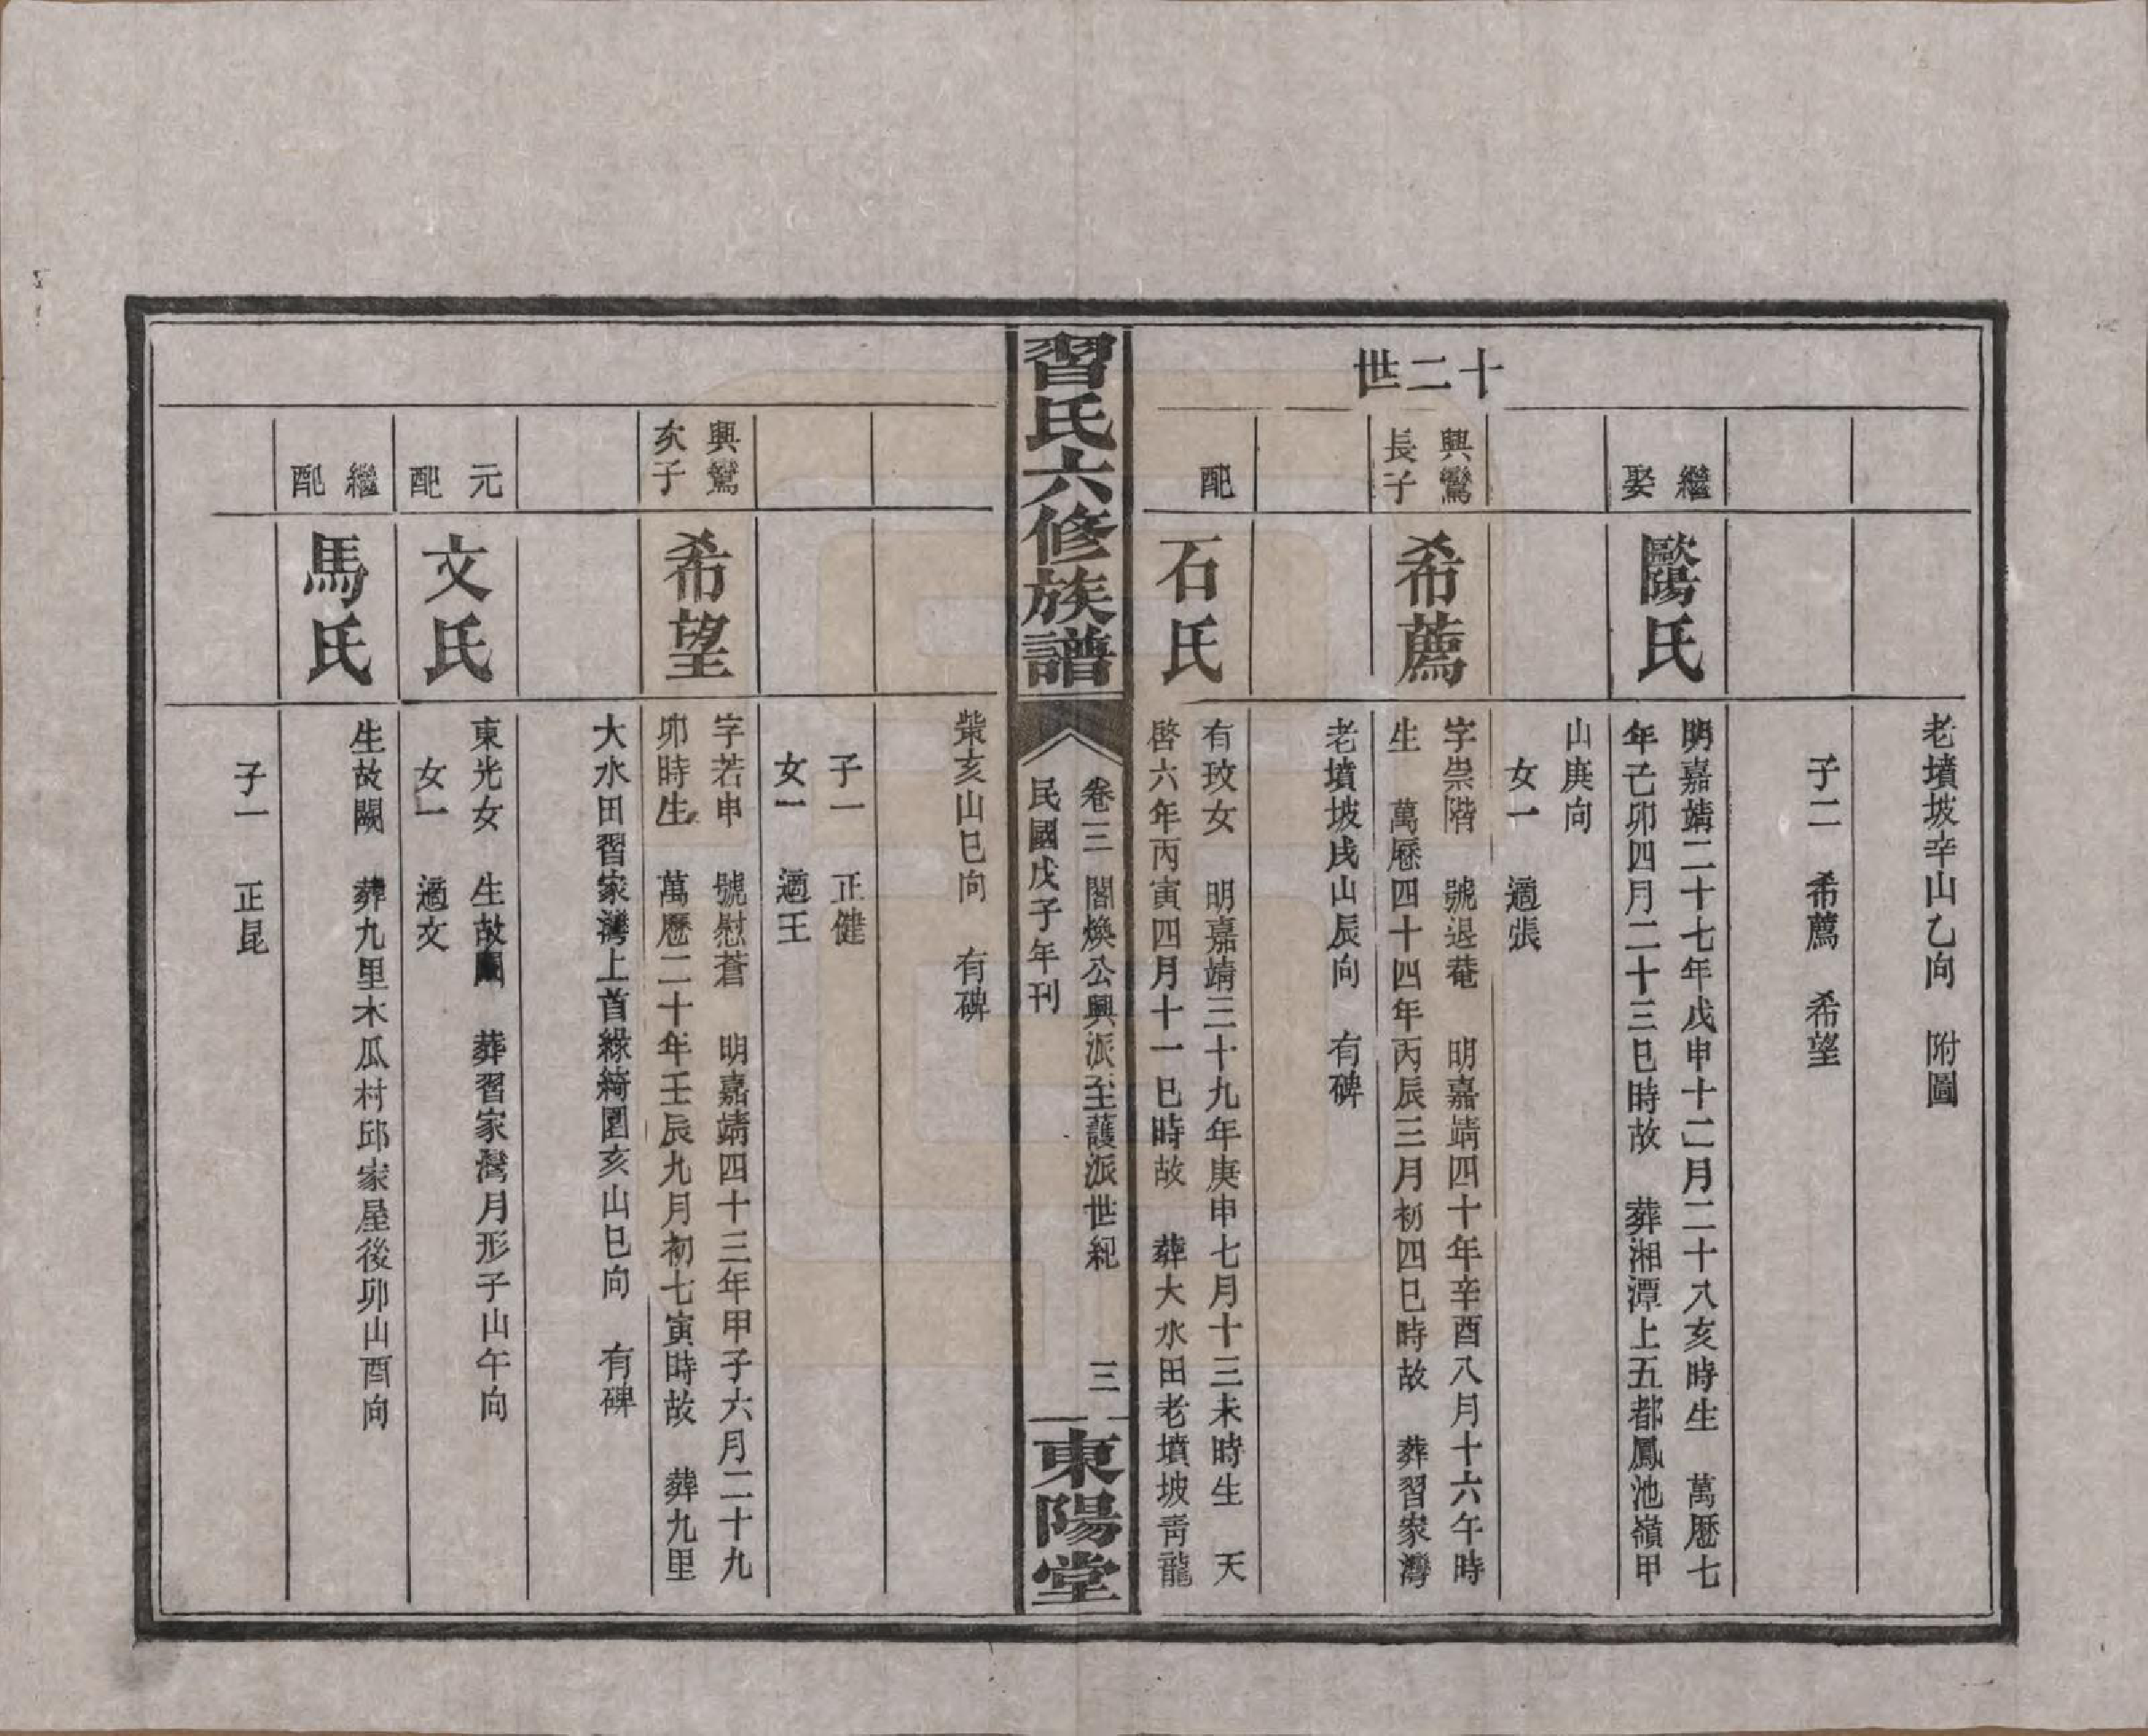 老墳坡辛山乙向　附圖
子二　希薦　希望
繼娶
歐陽氏
明嘉靖二十七年戊申十二月二十八亥時生　萬歷七
年己卯四月二十三巳時故　葬湘潭上五都鳳池嶺甲
山庚向
女一　適張
十二世
興鸞
長子
希薦
字崇階　號退菴　明嘉靖四十年辛酉八月十六午時
生　萬歷四十四年丙辰三月初四巳時故　葬習家灣
老墳坡戌山辰向　有碑
配
石氏
有玟女　明嘉靖三十九年庚申七月十三未時生　天
啓六年丙寅四月十一巳時故　葬大水田老墳坡靑龍
習氏六修族譜
卷三　閣煥公興派至護派世紀　三
民國戊子年刊
東陽堂
嘴亥山巳向　有碑
子一　正健
女一　適王
興鸞
次子
希望
字若申　號慰蒼　明嘉靖四十三年甲子六月二十九
卯時生　萬歷二十年壬辰九月初七寅時故　葬九里
大水田習家灣上首綠綺園亥山巳向　有碑
元配
文氏
東光女　生故闕　葬習家灣月形子山午向
女一　適文
繼配
馬氏
生故闕　葬九里木瓜村邱家屋後卯山酉向
子一　正昆